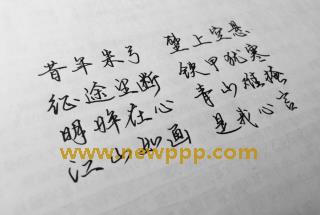 昔年朱弓 壁上空悬
征途望断 铁甲犹寒
明眸在心 青山难掩
江山如画 是我心言
www.newppp.com